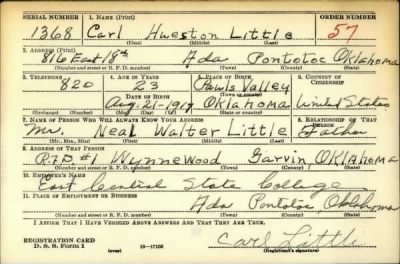 SERIAL NUMBER 1. NAME (Print) ORDER NUMBER
1368 Carl Hueston Little 57
(First) (Middle) (Last)
2. ADDRESS (Print)
816 East 18th Ada Pontotoc Oklahoma
(Number and street or R. F. D. number) (Town) (County) (State)
3. TELEPHONE 4. AGE IN YEARS 5. PLACE OF BIRTH 6. COUNTRY OF CITIZENSHIP
820 23 Pauls Valley
DATE OF BIRTH (Town or county)
Aug. 21-1917 Oklahoma United States
(Mo.) (Day) (Yr.) (State or country)
7. NAME OF PERSON WHO WILL ALWAYS KNOW YOUR ADDRESS 8. RELATIONSHIP OF THAT PERSON
Mr. Neal Walter Little Father
(Mr., Mrs., Miss) (First) (Middle) (Last)
9. ADDRESS OF THAT PERSON
R.F.D. #1 Wynnewood Garvin, Oklahoma
(Number and street or R. F. D. number) (Town) (County) (State)
10. EMPLOYER'S NAME
East Central State College
11. PLACE OF EMPLOYMENT OR BUSINESS
Ada Pontotoc, Oklahoma
(Number and street or R. F. D. number) (Town) (County) (State)
I AFFIRM THAT I HAVE VERIFIED ABOVE ANSWERS AND THAT THEY ARE TRUE.
REGISTRATION CARD
D. S. S. Form 1 (over) 16—17105 Carl Little
(Registrant's signature)